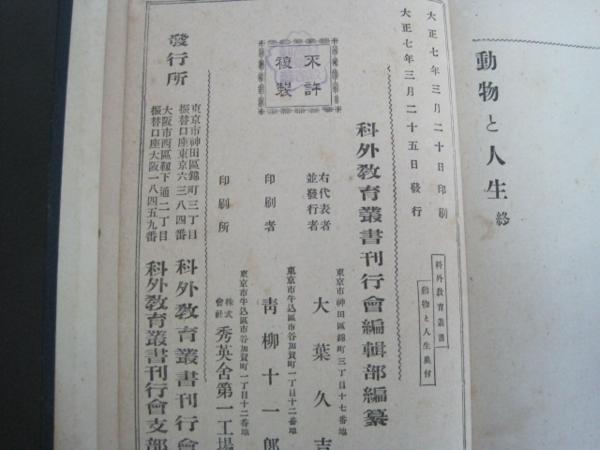 動物と人生 終
大正七年三月二十日印刷
大正七年三月二十五日發行
科外敎育叢書
動物と人生奥付
科外敎育叢書刊行會編輯部編纂
不許
複製
東京市神田區錦町三丁目十七番地
右代表者
並發行者
大葉久吉
東京市牛込區市谷加賀町一丁目十二番地
印刷者
靑柳十一郎
東京市牛込區市谷加賀町一丁目十二番地
印刷所
株式
會社
秀英舍第一工場
發行所
東京市神田區錦町三丁目
振替口座東京六三八四番
科外敎育叢書刊行會
大阪市西區靱下通二丁目
振替口座大阪一八四五九番
科外敎育叢書刊行會支部